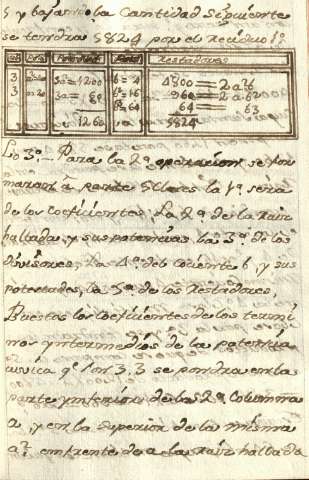 s y bajando la Cantidad siguiente
se tendra 5824 por el residuo
3 3a=1200 b=4 4800=2a²b
3 3a= 60 b²=16 960=2ab²
b³=64 64= b3
1260 5824
Lo 3º_ Para la 2ª operacion se for
maran á parte 5 llores la 1ª sera
de los coeficientes, La 2ª de la raiz
hallada, y sus potencias la 3ª de los
divisores, La 4ª del cociente b, y sus
potestades, la 5ª de los restadores,
Puestos los coeficientes de los termi
nos yntermedios de la potencia
cuvica qe son 3,3 se pondra en la
parte ynferior de la 2ª Columna
a, y en la superior de la misma
a² en frente de a la raiz hallada